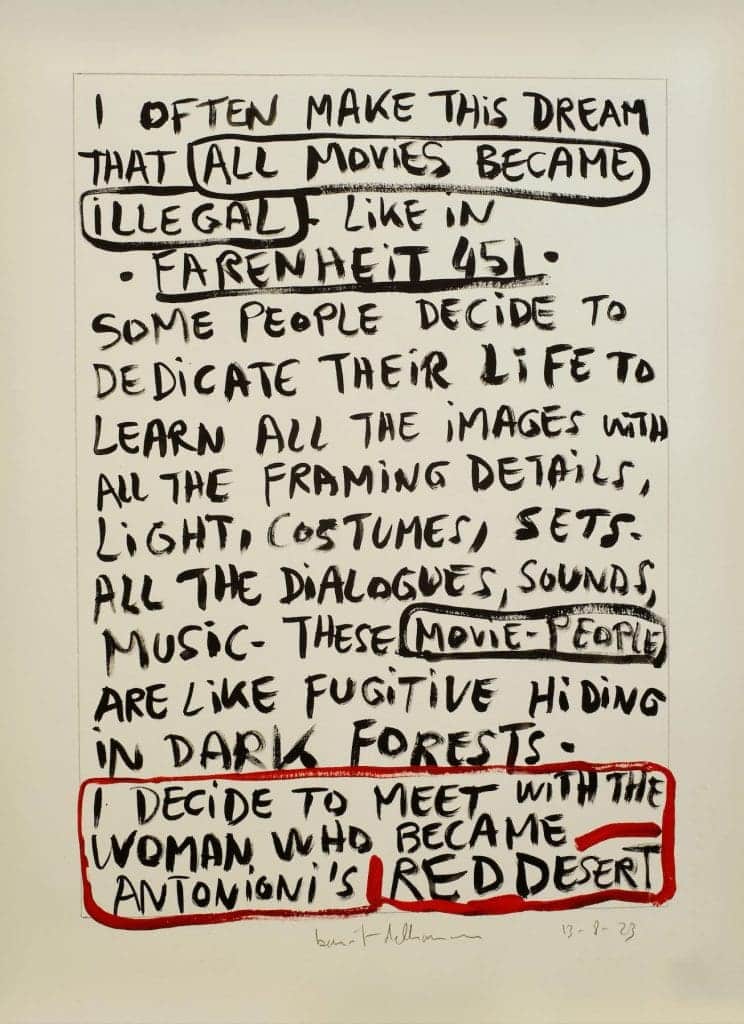 I OFTEN MAKE THIS DREAM
THAT ALL MOVIES BECAME
ILLEGAL - LIKE IN
• FARENHEIT 451 •
SOME PEOPLE DECIDE TO
DEDICATE THEIR LIFE TO
LEARN ALL THE IMAGES WITH
ALL THE FRAMING DETAILS,
LIGHT, COSTUMES, SETS.
ALL THE DIALOGUES, SOUNDS,
MUSIC- THESE MOVIE-PEOPLE
ARE LIKE FUGITIVE HIDING
IN DARK FORESTS.
I DECIDE TO MEET WITH THE
WOMAN WHO BECAME
ANTONIONI'S RED DESERT
13-8-23